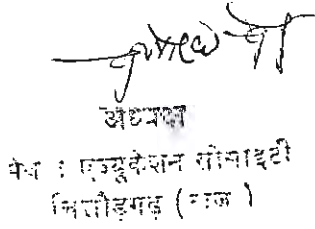 अध्यक्ष
: एज्यूकेशन सोसाइटी
चित्तौड़गढ़ (राज )